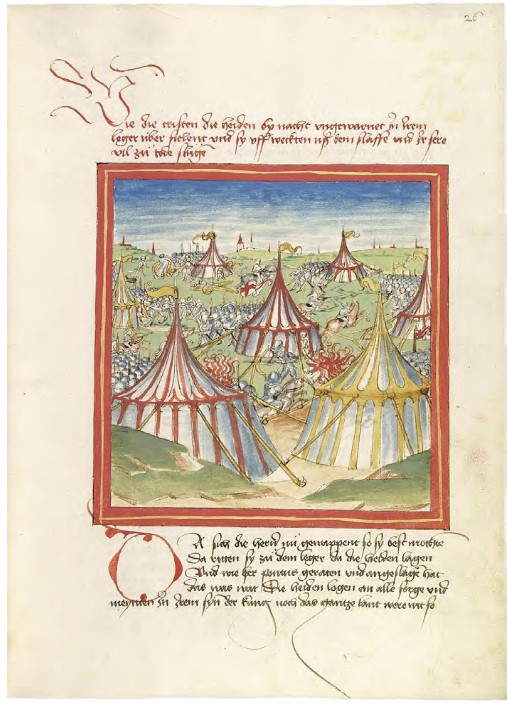 26
Wie die cristen die heiden by nacht ungewarnet in irem
leger über fielent und sy uff weckten uß dem slaffe und ir fere
vil zü tode slüge
DA sich die hern nü gewappent so sy best mochte
Da ritten sy zü dem leger da die heiden lagen
Und wie ber pontus geraten und angeslage hat
das was war Die heiden logen on alle sorge und
meynten in irem syn der küng noch das gantze lant were nit so